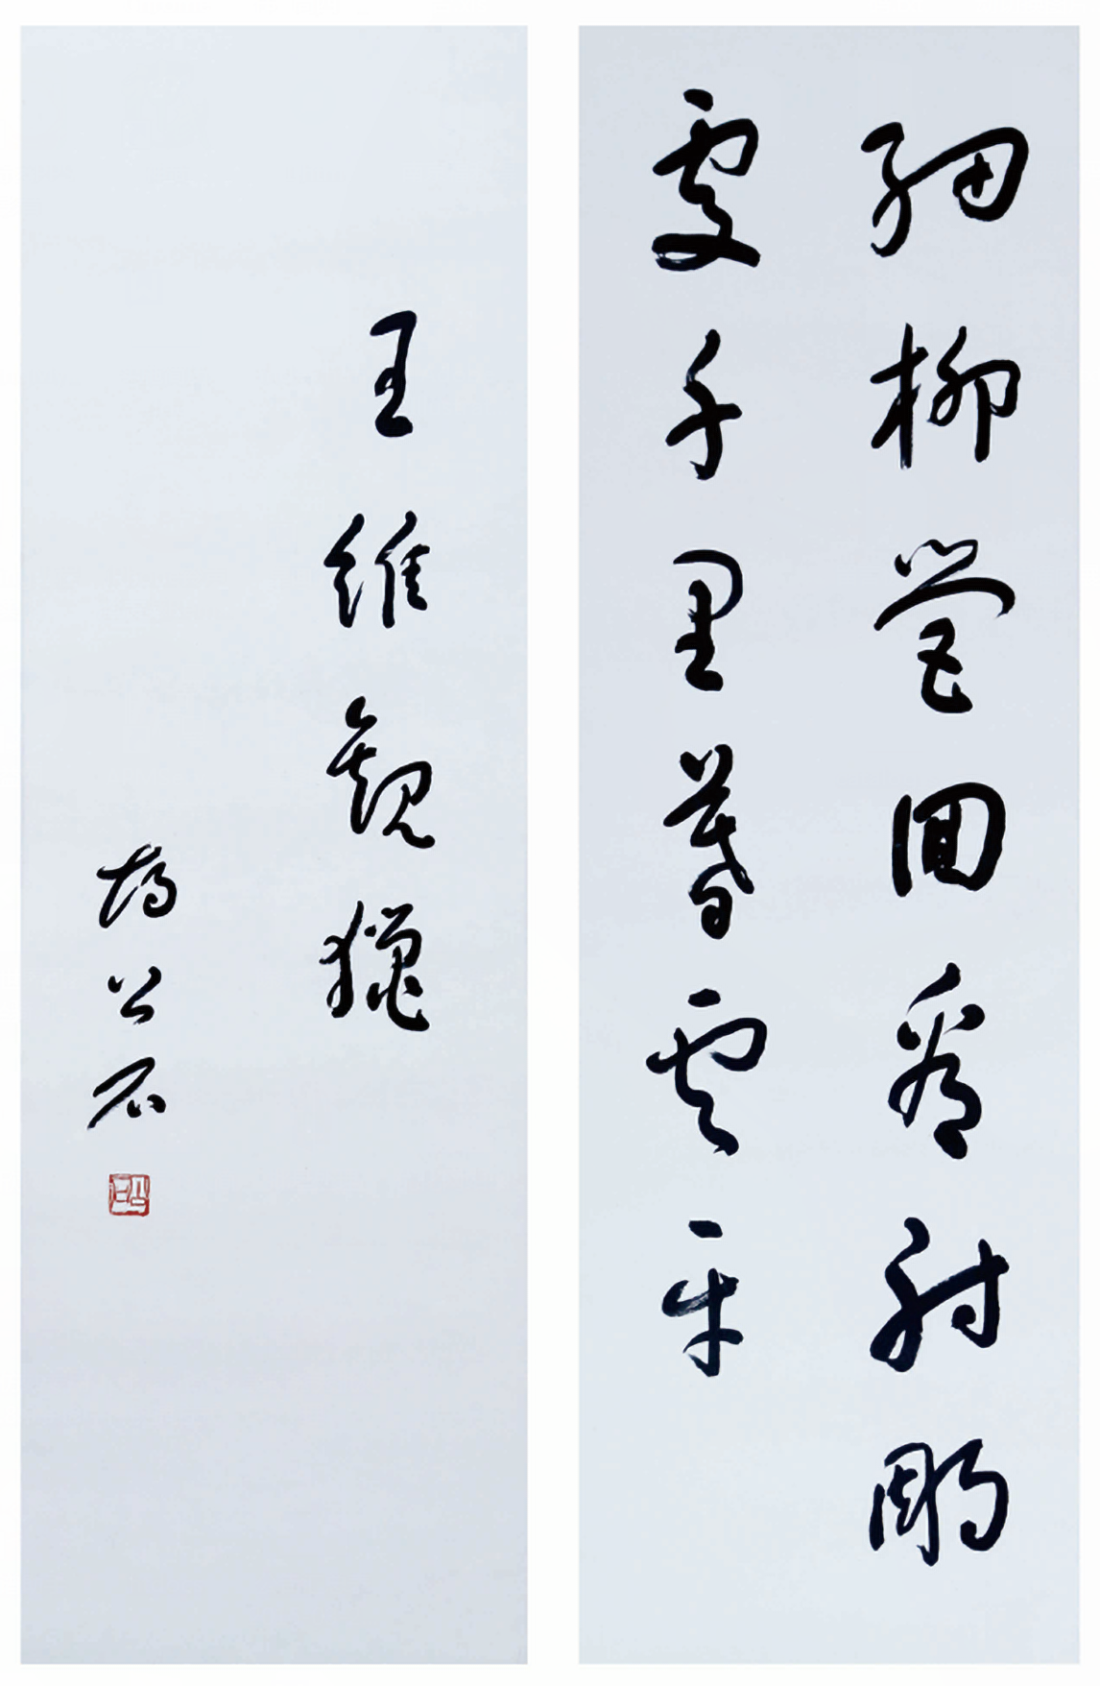 細柳營回看射鵰
處千里暮雲平
王維觀獵
公石